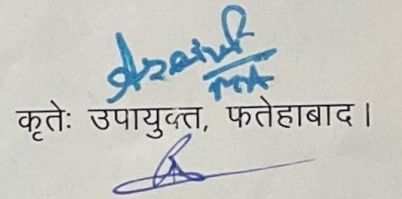 कृतेः उपायुक्त, फतेहाबाद।